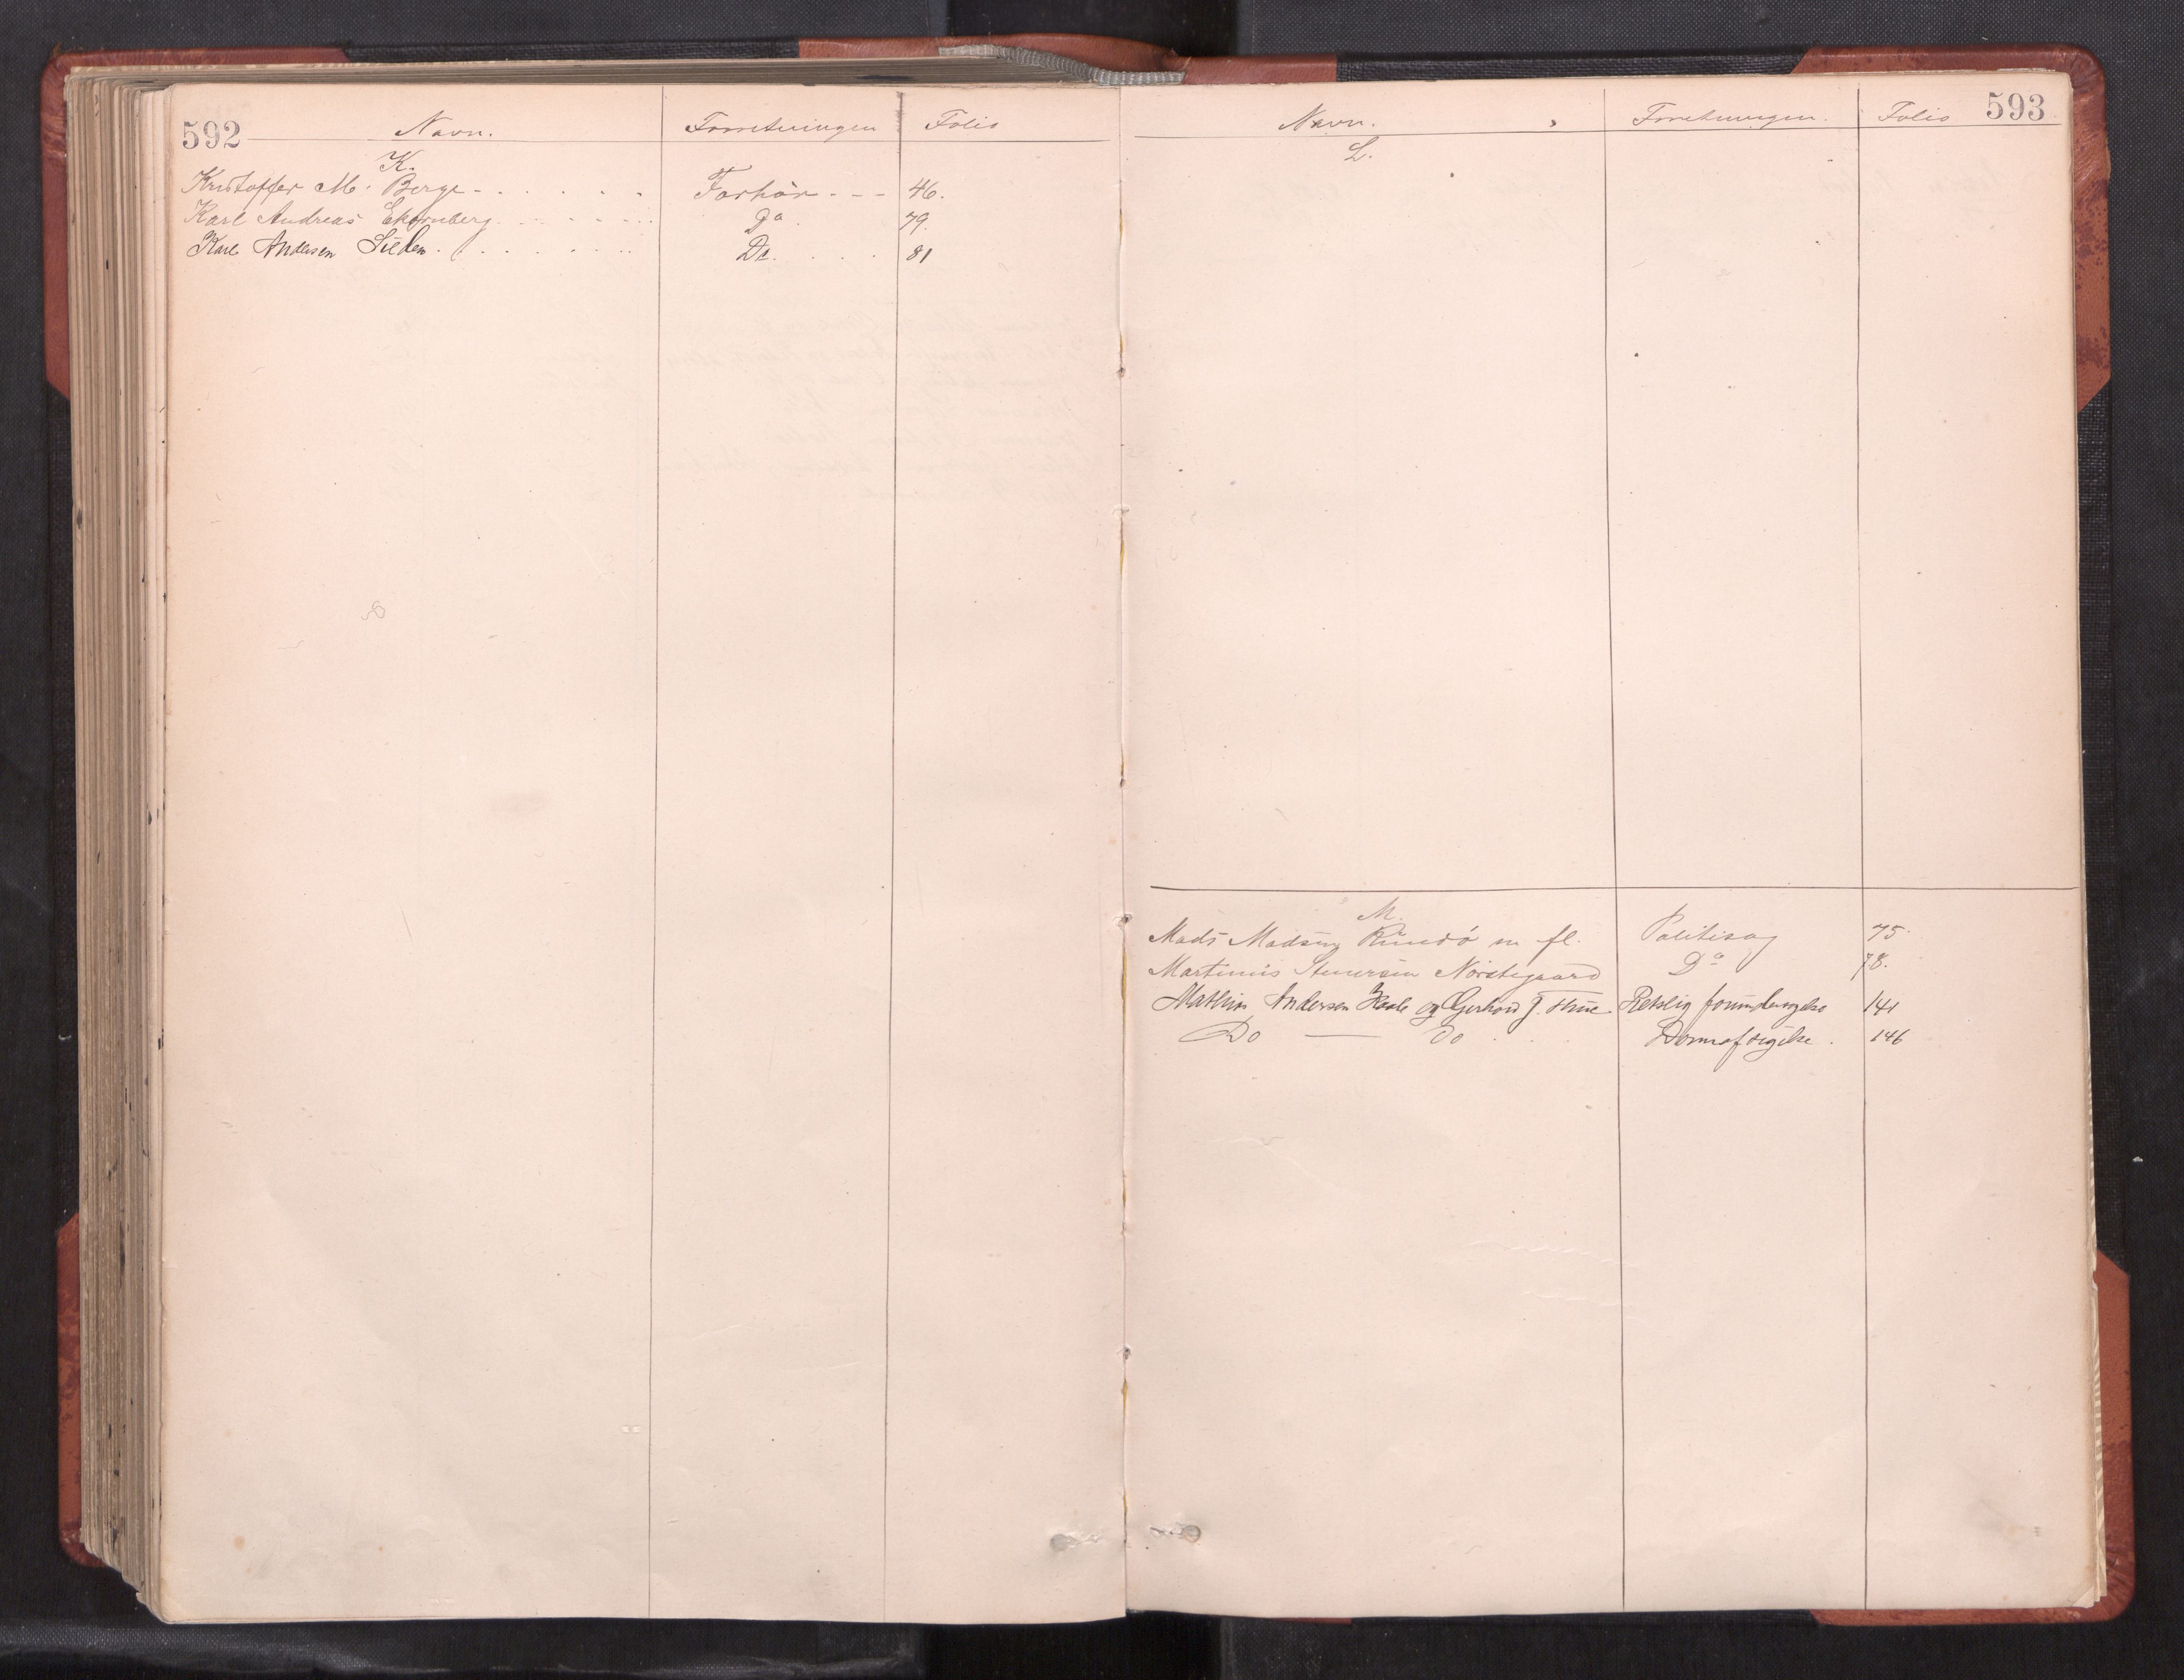 592 Navn. Forretningen Folio
K.
Kristoffer M. Berge - . . . . . Forhör - - - 46.
Karl Andreas Ekornberg . . . . . Do . 79.
Karl Andersen Silden . . . . . . . Do. . . . 81
Navn. Forretningen. Folio 593
L.
M.
Mads Madsen Rundö m fl. Politisag 75.
Martinus Stenersen Nörstegaard Do 78.
Mathias Andersen og Gerhard J. Retslig forundersøgelse 141
Do — Do . . . Domsafsigelse . 146